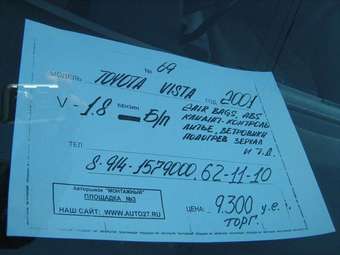 № 69
МОДЕЛЬ TOYOTA VISTA ГОД 2001
V - 1.8 БЕНЗИН - Б/П
2AIR BAGS, ABS
КЛИМАТ-КОНТРОЛЬ
ЛИТЬЕ, ВЕТРОВИКИ
ПОДОГРЕВ ЗЕРКАЛ
И Т.Д.
ТЕЛ
8-914-1579000, 62-11-10
Авторынок "МОНТАЖНЫЙ"
ПЛОЩАДКА №3
НАШ САЙТ: WWW.AUTO27.RU
ЦЕНА: 9.300 у.е.
ТОРГ.